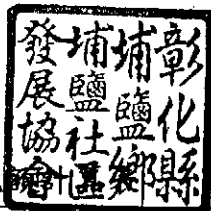 彰化縣
埔鹽鄉
埔鹽社區
發展協會